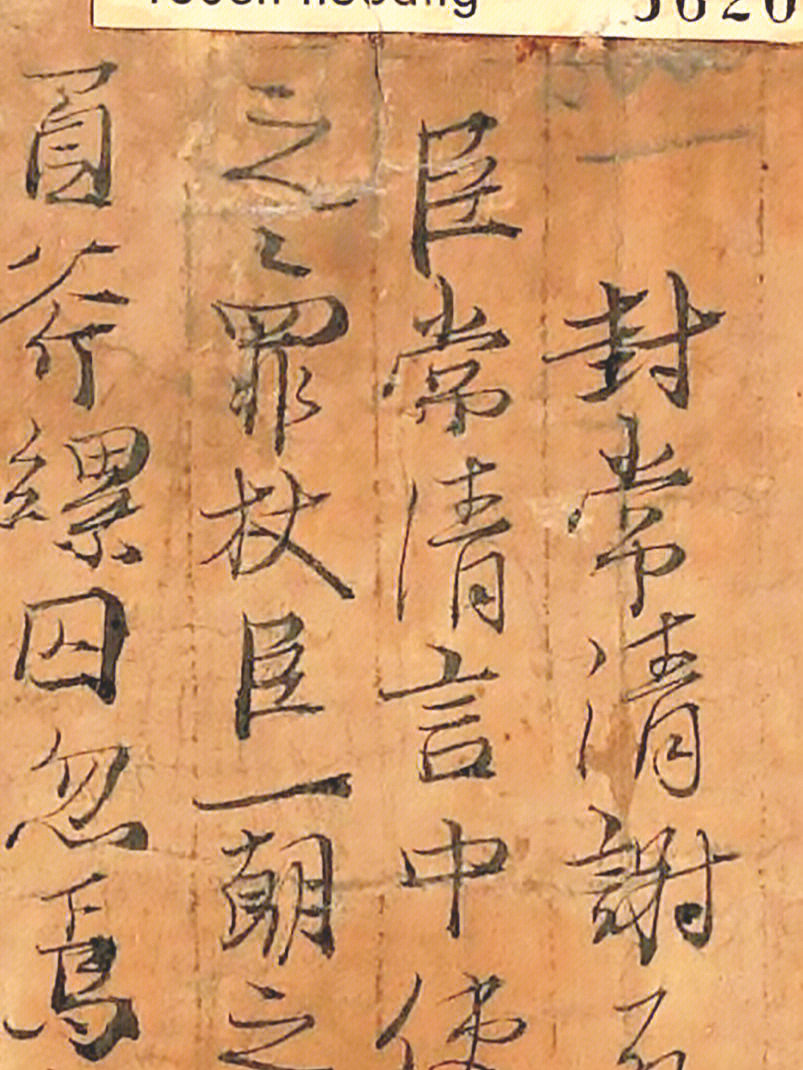 3620
封常清謝
臣常清言中使
之〻罪杖臣一朝之
縲囚忽焉